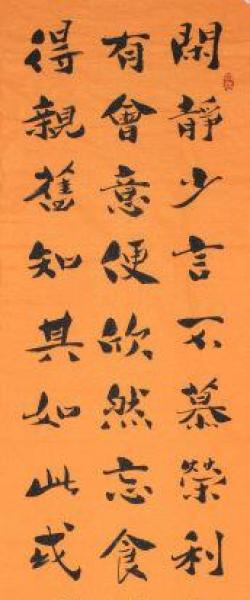 閑靜少言不慕榮利
有會意便欣然忘食
得親舊知其如此或